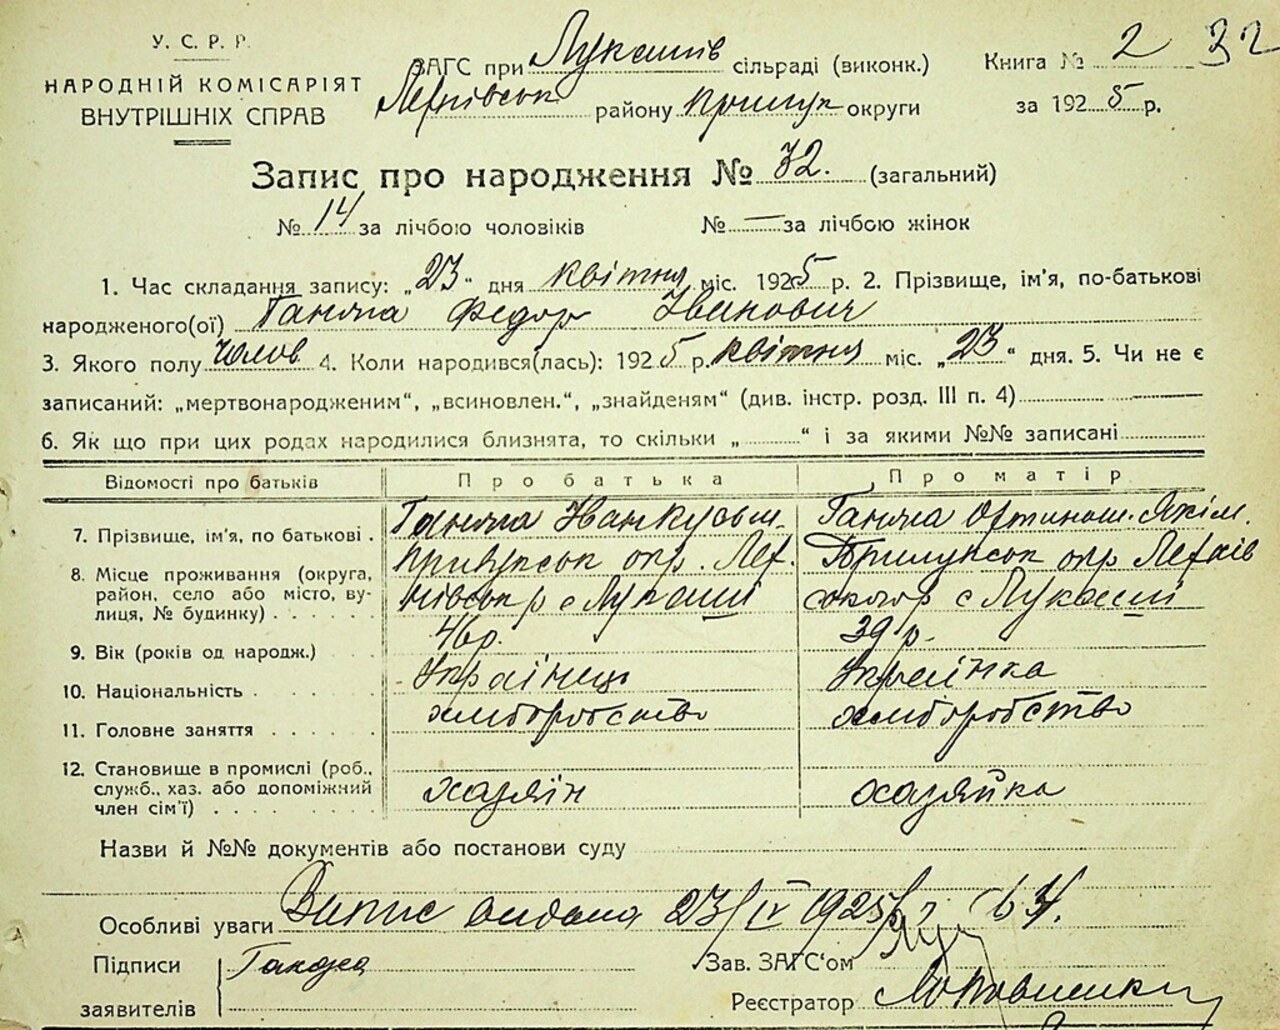 У. С. Р. Р.
НАРОДНІЙ КОМІСАРІЯТ
ВНУТРІШНІХ СПРАВ
ЗАГС при Лукашів сільраді (виконк.)
районy Прилук округи
Книга № 2 32
за 1925 р.
Запис про народження № 32. (загальний)
№ 14 за лічбою чоловіків № — за лічбою жінок
1. Час складання запису: „23“ дня квітня міс. 1925 р. 2. Прізвище, ім'я, по-батькові
народженого(ої) Федор Іванович
3. Якого полу Чолов 4. Коли народився(лась): 1925 р. квітня міс. „23“ дня. 5. Чи не є
записаний: „мертвонародженим“, „всиновлен.“, „знайденям“ (див. інстр. розд. III п. 4)
6. Як що при цих родах народилися близнята, то скільки „ “ і за якими №№ записані
Відомості про батьків Про батька Про матір
7. Прізвище, ім'я, по батькові . Іван Кузьм. Якім.
8. Місце проживання (округа, Прилукськ окр. Прилукськ окр
район, село або місто, ву- с Лукаші с Лукаші
лиця, № будинку) . . . . .
9. Вік (років од народж.) 46р. 39 р.
10. Національність . . . . . Українець Українка
11. Головне заняття . . . . . хліборобство хліборобство
12. Становище в промислі (роб.,
служб., хаз. або допоміжний хазяїн хазяйка
член сім'ї) . . . . . . .
Назви й №№ документів або постанови суду
Особливі уваги Випис видана 23/IV 1925 р.
Підписи
заявителів
Зав. ЗАГС‘ом
Реєстратор